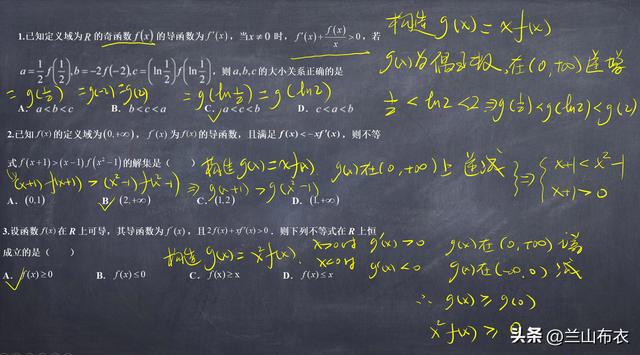 1.已知定义域为 R 的奇函数 f(x) 的导函数为 f′(x)，当 x≠0 时，f′(x)+f(x)/x>0，若
a=1/2 f(1/2),b=-2f(-2),c=(ln 1/2)f(ln 1/2)，则 a,b,c 的大小关系正确的是
=g(1/2) =g(-2)=g(2) =g(ln 1/2)=g(ln2)
A. a<b<c B. b<c<a C. a<c<b D. c<a<b
构造 g(x)=xf(x)
g(x)为偶函数,在(0,+∞)递增
1/2<ln2<2⇒g(1/2)<g(ln2)<g(2)
2.已知 f(x) 的定义域为(0,+∞)，f′(x) 为 f(x) 的导函数，且满足 f(x)<-xf′(x)，则不等
式 f(x+1)>(x-1)f(x²-1) 的解集是（ ）
构造g(x)=xf(x) g(x)在(0,+∞)上递减
(x+1)f(x+1)>(x²-1)f(x²-1)⇒g(x+1)>g(x²-1)
⇒{x+1<x²-1
x+1>0
A. (0,1) B. (2,+∞) C. (1,2) D. (1,+∞)
3.设函数 f(x) 在 R 上可导，其导函数为 f′(x)，且2f(x)+xf′(x)>0．则下列不等式在 R 上恒
成立的是（ ）
构造g(x)=x²f(x).
x>0时 g′(x)>0 g(x)在(0,+∞)增
x<0时 g′(x)<0 g(x)在(-∞,0)减
A. f(x)≥0 B. f(x)≤0 C. f(x)≥x D. f(x)≤x
∴ g(x)≥g(0)
x²f(x)≥0
头条 @兰山布衣